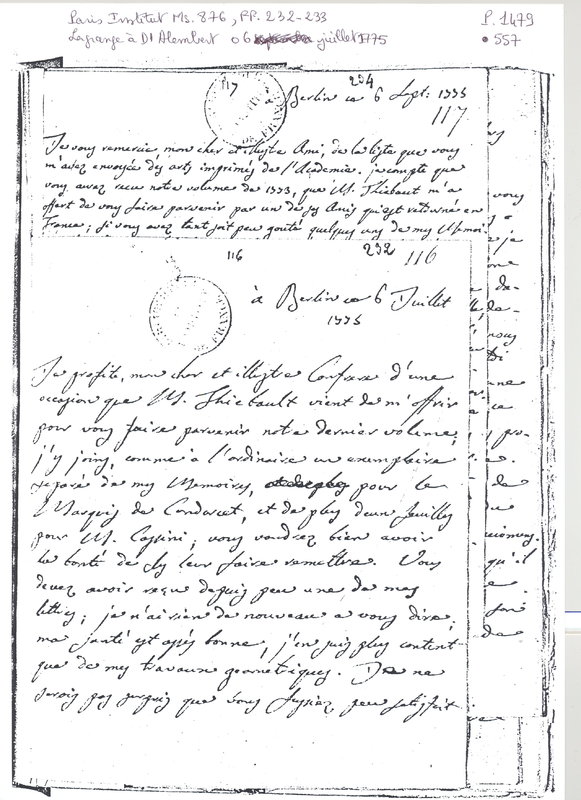 Paris Institut Ms. 876, FF. 232-233
P. 1479
Lagrange à D'Alembert 06 juillet 1775
• 557
117
234
à Berlin ce 6 Sept: 1775
117
Je vous remercie mon cher et illustre Ami, de la liste que vous
m'avez envoyée des arts imprimés de l'Academie. je compte que
vous avez recu notre volume de 1773, que M. Thiebaut m'a
offert de vous faire parvenir par un de ses Amis qui est retourné en
France; si vous avez tant soit peu gouté quelques uns de mes Memoi
116
232
116
à Berlin ce 6 Juillet
1775
Je profite, mon cher et illustre Confrere d'une
occasion que M. Thiebault vient de m'offrir
pour vous faire parvenir notre dernier volume,
j'y joins, comme à l'ordinaire un exemplaire
separé de mes Memoires, pour le
Marquis de Condorcet, et de plus deux feuilles
pour M. Cassini; vous voudrez bien avoir
la bonté de les leur faire remettre. Vous
devez avoir reçu depuis peu une de mes
lettres; je n'ai rien de nouveau a vous dire;
ma santé est assés bonne, j'en suis plus content
que de mes travaux geometriques. Je ne
serois pas surpris que vous fussiez peu satisfait